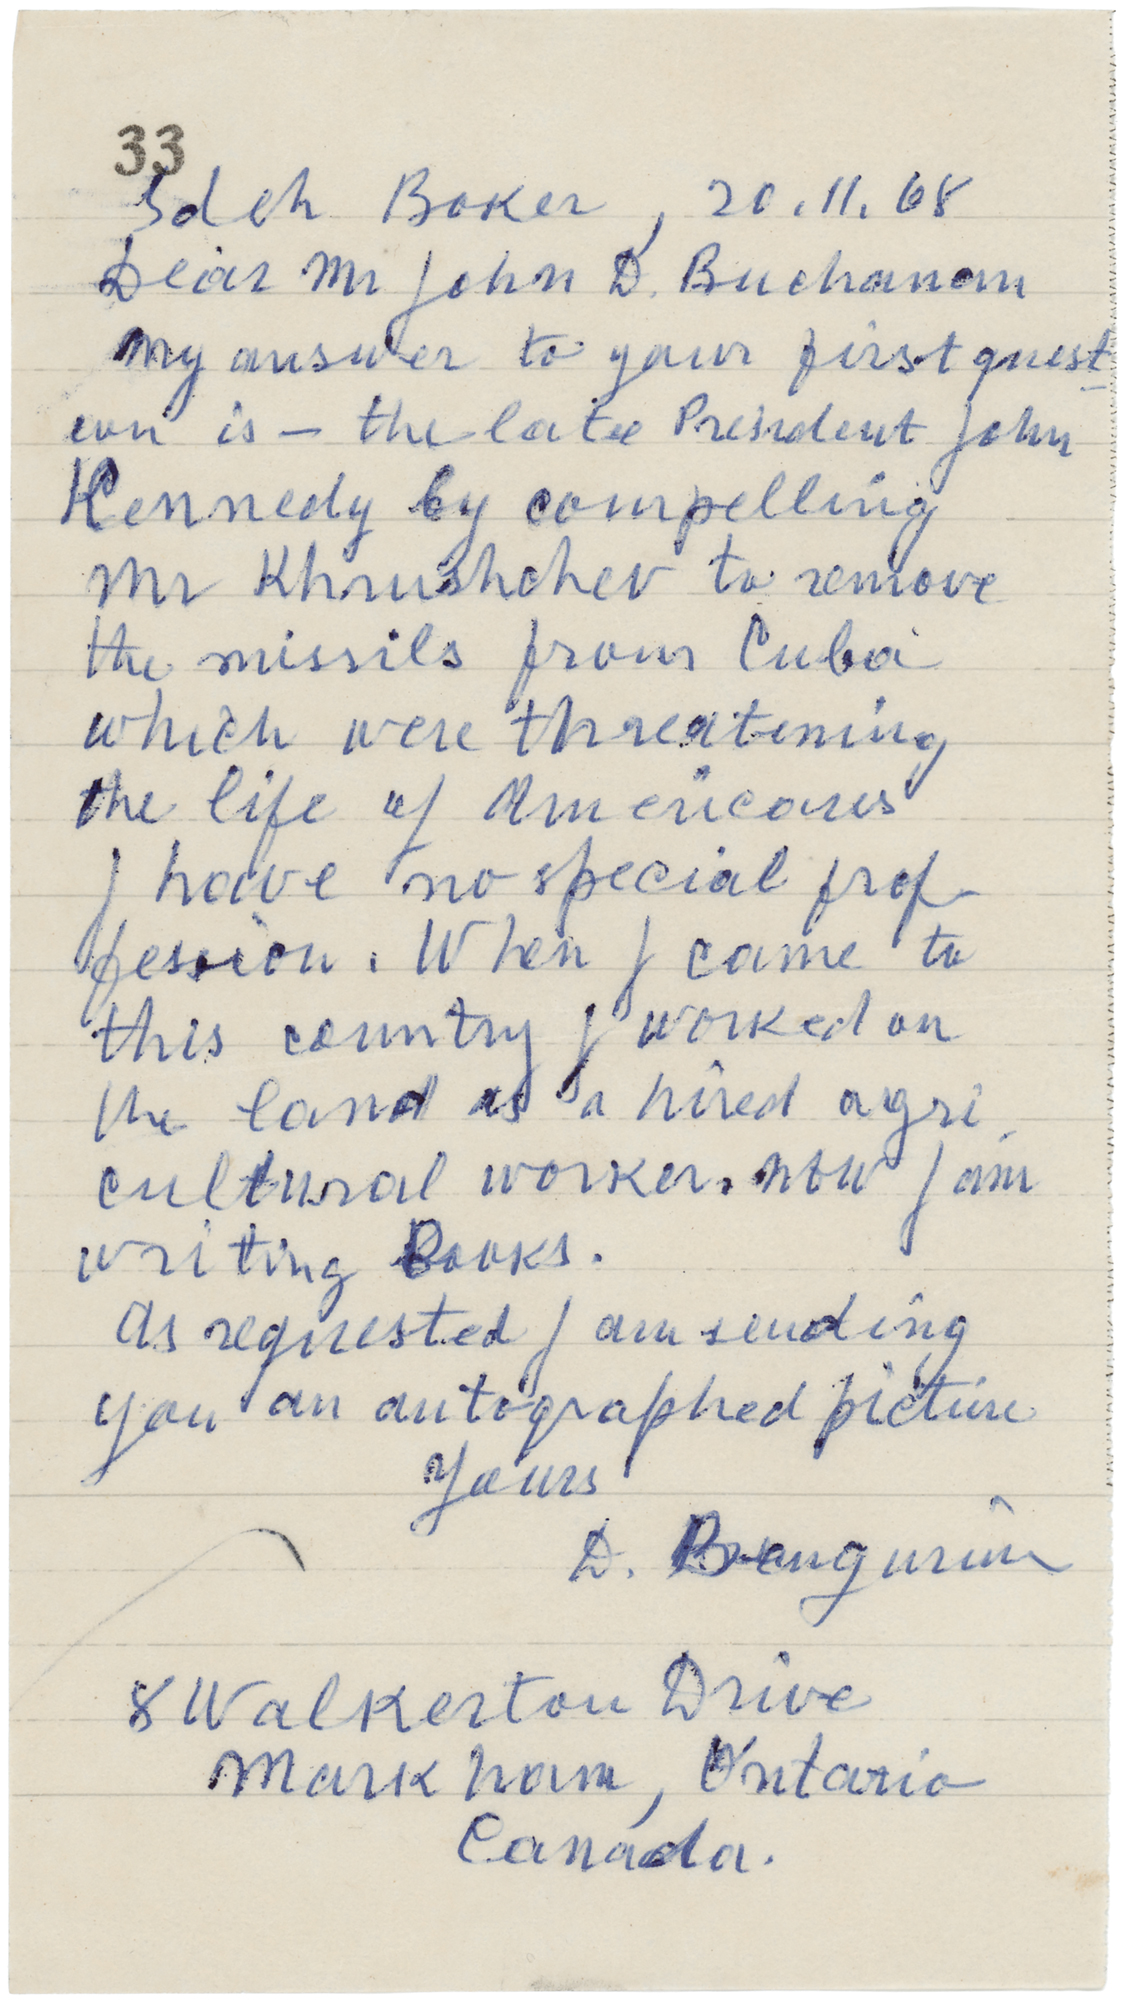 33
Sdeh Boker, 20.11.68
Dear Mr John D. Buchanan
My answer to your first quest-
ion is – the late President John
Kennedy by compelling
Mr Khrushchev to remove
the missils from Cuba
which were threatening
the life of Americans
I have no special prof-
fession. When I came to
this country I worked on
the land as a hired agri-
cultural worker. Now I am
writing Books.
As requested I am sending
you an autographed picture
Yours
D. Bengurion
8 Walkerton Drive
Markham, Ontario
Canada.